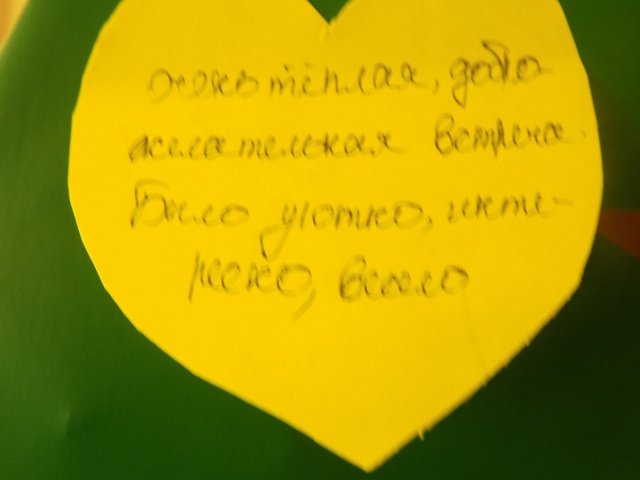 очень тёплая, добро
желательная встреча.
Было уютно, инте-
ресно, весело